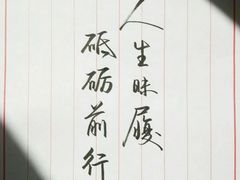 人生昧履
砥砺前行